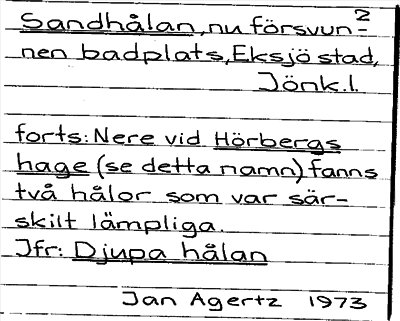 2
Sandhålan, nu försvun-
nen badplats, Eksjö stad,
Jönk.l.
forts: Nere vid Hörbergs
hage (se detta namn) fanns
två hålor som var sär-
skilt lämpliga.
Jfr: Djupa hålan
Jan Agertz 1973